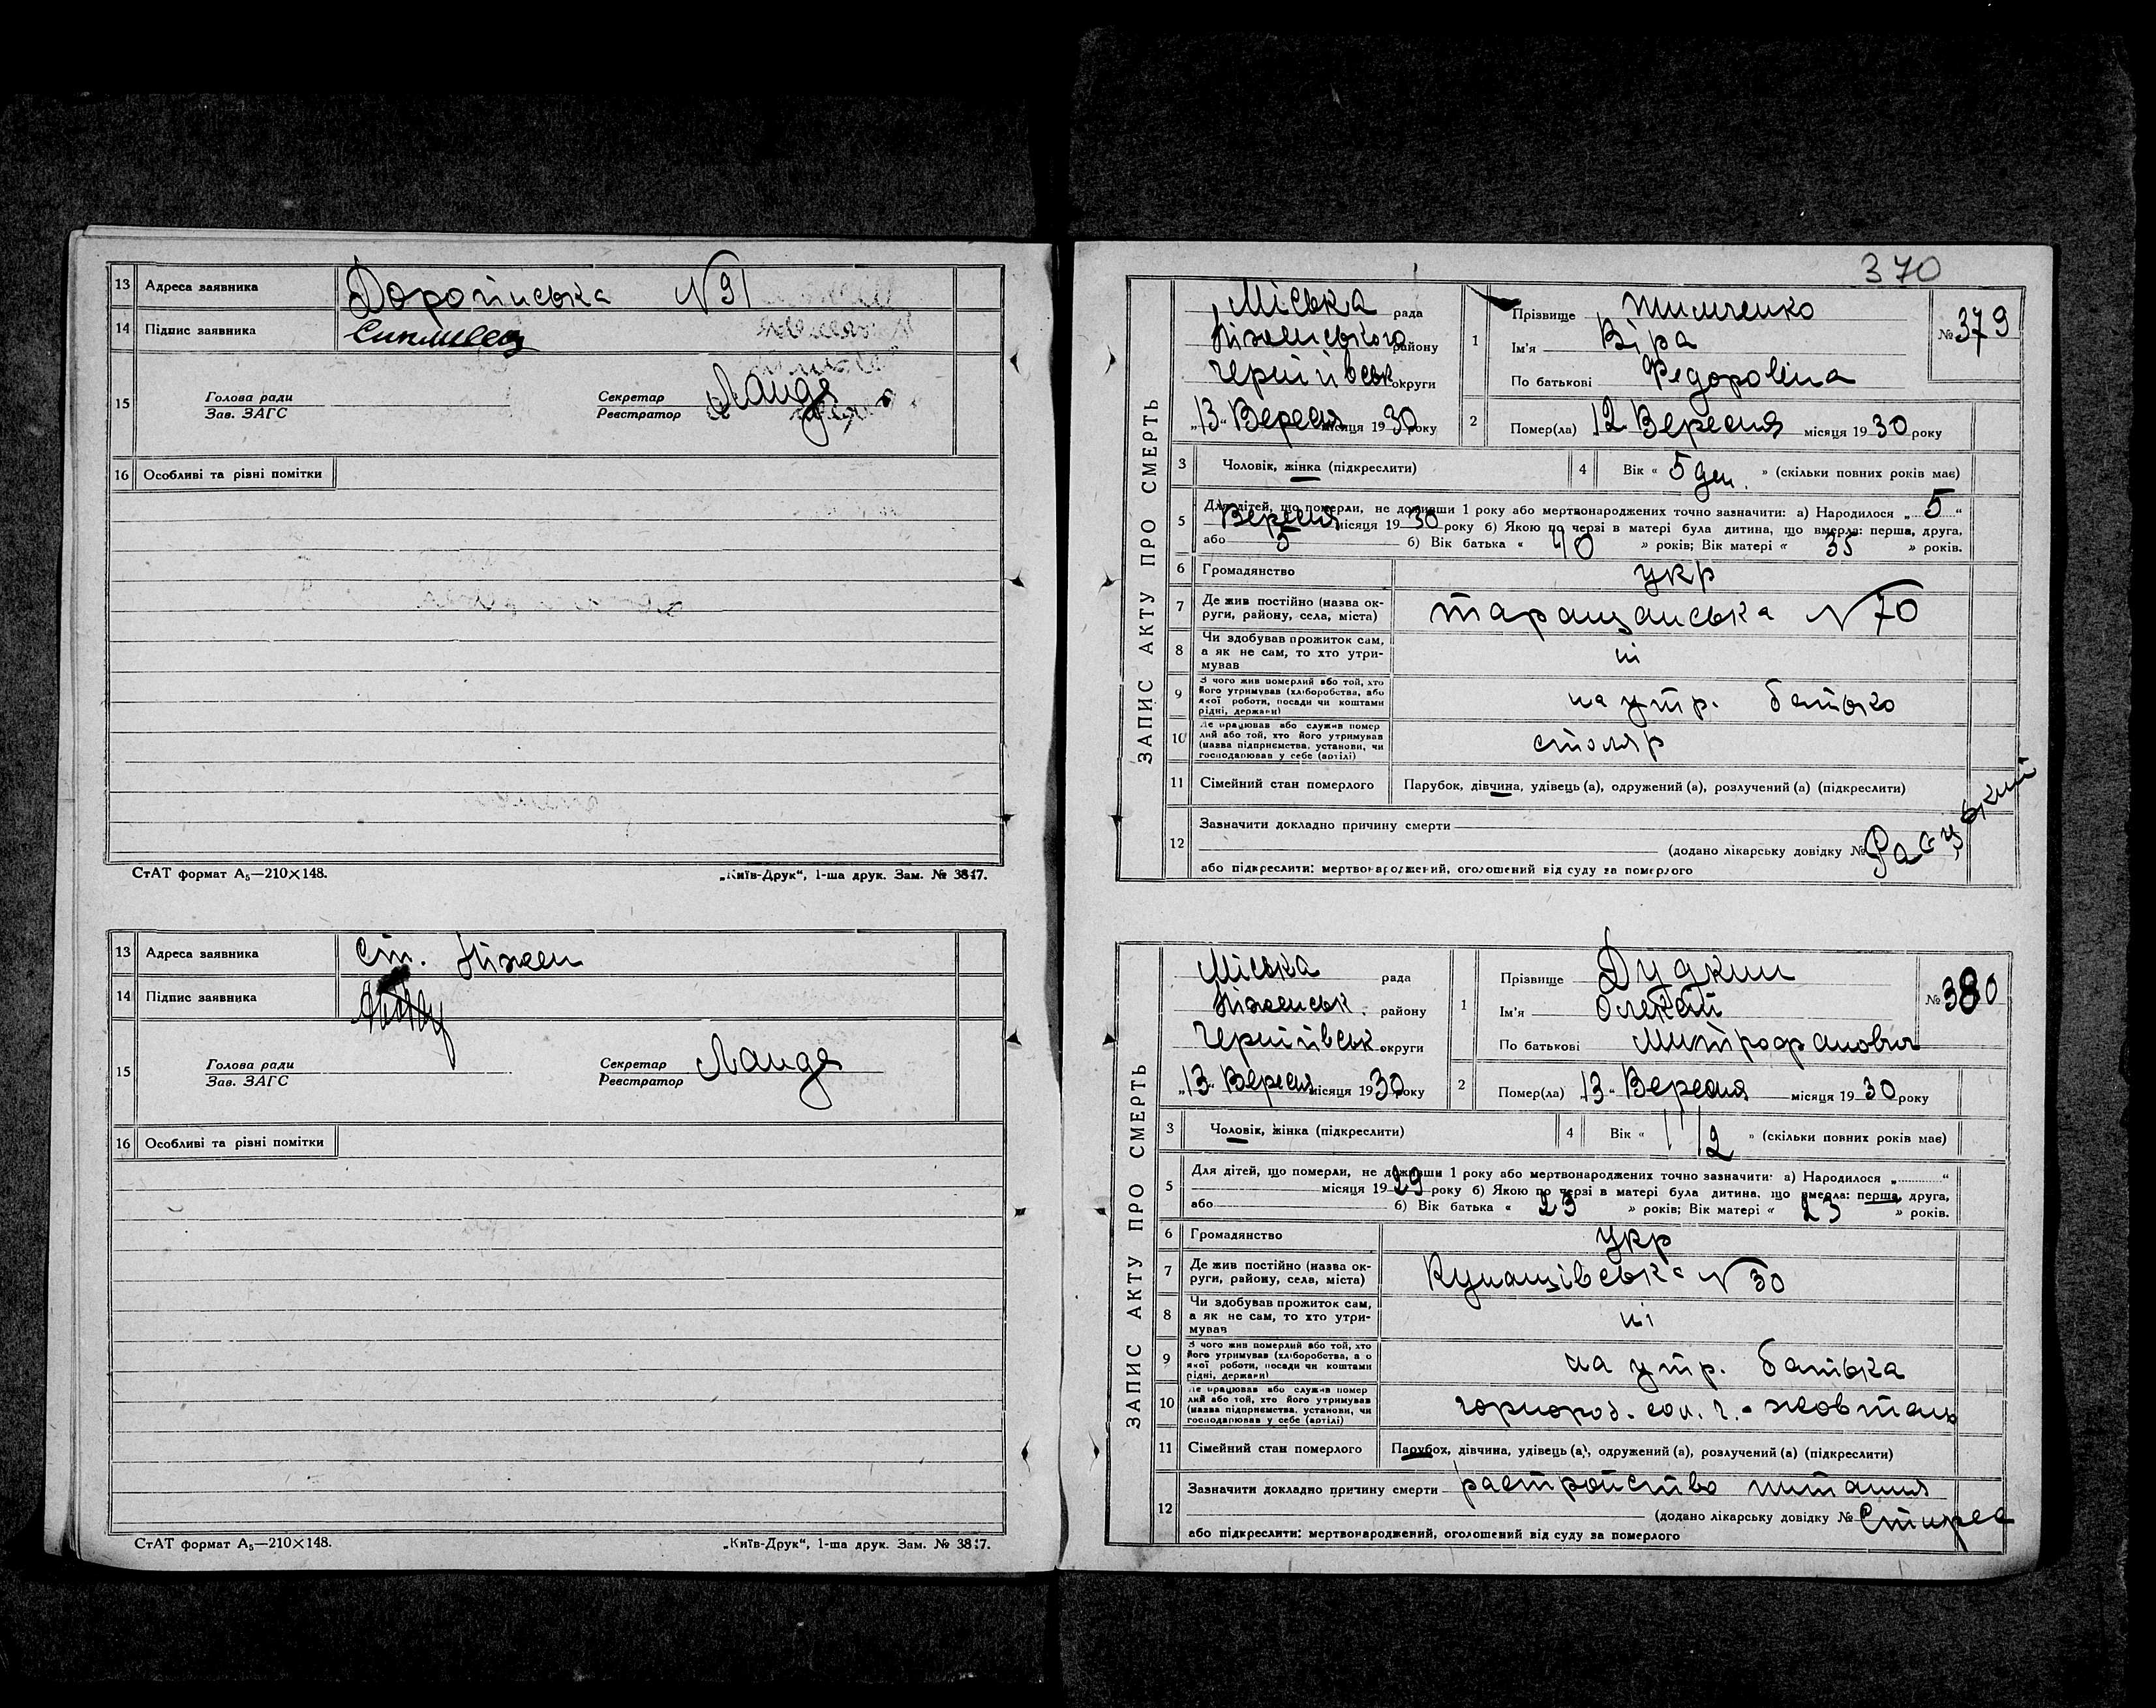 13 Адреса заявника Дорогінська N 91
14 Підпис заявника
15 Голова ради Секретар Ланда
Зав. ЗАГС Реєстратор
16 Особливі та різні помітки
СтАТ формат А₅—210×148. „Київ-Друк“, 1-ша друк. Зам. № 3817.
13 Адреса заявника Ст. Ніжен
14 Підпис заявника
15 Голова ради Секретар Ланда
Зав. ЗАГС Реєстратор
16 Особливі та різні помітки
СтАТ формат А₅—210×148. „Київ-Друк“, 1-ша друк. Зам. № 3817.
370
ЗАПИС АКТУ ПРО СМЕРТЬ
Міська рада
Ніженського району
Чернігівськ округи
„13“ Вересня місяця 1930 року
1 Прізвище Тимченко
Ім'я Віра
По батькові Федоровна
№ 379
2 Помер(ла) 12 Вересня місяця 1930 року
3 Чоловік, жінка (підкреслити) 4 Вік « 5 ден. » (скільки повних років має)
5 Для дітей, що померли, не доживши 1 року або мертвонароджених точно зазначити: а) Народилося „ 5 “
Вересня місяця 1930 року б) Якою по черзі в матері була дитина, що вмерла: перша, друга,
або 5 б) Вік батька « 40 » років; Вік матері « 35 » років.
6 Громадянство укр
7 Де жив постійно (назва округи, району, села, міста) Таращанська N 70
8 Чи здобував прожиток сам, а як не сам, то хто утримував ні
9 З чого жив померлий або той, хто його утримував (хліборобства, або якої роботи, посади чи коштами рідні, держави) на утр. батько
10 Де працював або служив померлий або той, хто його утримував (назва підприємства, установи, чи господарював у себе (артілі) столяр
11 Сімейний стан померлого Парубок, дівчина, удівець (а), одружений (а), розлучений (а) (підкреслити)
12 Зазначити докладно причину смерти
(додано лікарську довідку №
або підкреслити: мертвонароджений, оголошений від суду за померлого
ЗАПИС АКТУ ПРО СМЕРТЬ
Міська рада
Ніженськ. району
Чернігівськ. округи
„13“ Вересня місяця 1930 року
1 Прізвище Дудкин
Ім'я Олексій
По батькові Митрофанович
№ 380
2 Помер(ла) 13 “ Вересня місяця 1930 року
3 Чоловік, жінка (підкреслити) 4 Вік « 1 1/2 » (скільки повних років має)
5 Для дітей, що померли, не доживши 1 року або мертвонароджених точно зазначити: а) Народилося „ “
місяця 1929 року б) Якою по черзі в матері була дитина, що вмерла: перша, друга,
або б) Вік батька « 23 » років; Вік матері « 23 » років.
6 Громадянство укр
7 Де жив постійно (назва округи, району, села, міста) Кунашівська N 30
8 Чи здобував прожиток сам, а як не сам, то хто утримував ні
9 З чого жив померлий або той, хто його утримував (хліборобства, або якої роботи, посади чи коштами рідні, держави) на утр. батька
10 Де працював або служив померлий або той, хто його утримував (назва підприємства, установи, чи господарював у себе (артілі)
11 Сімейний стан померлого Парубок, дівчина, удівець (а), одружений (а), розлучений (а) (підкреслити)
12 Зазначити докладно причину смерти растройство питания
(додано лікарську довідку №
або підкреслити: мертвонароджений, оголошений від суду за померлого